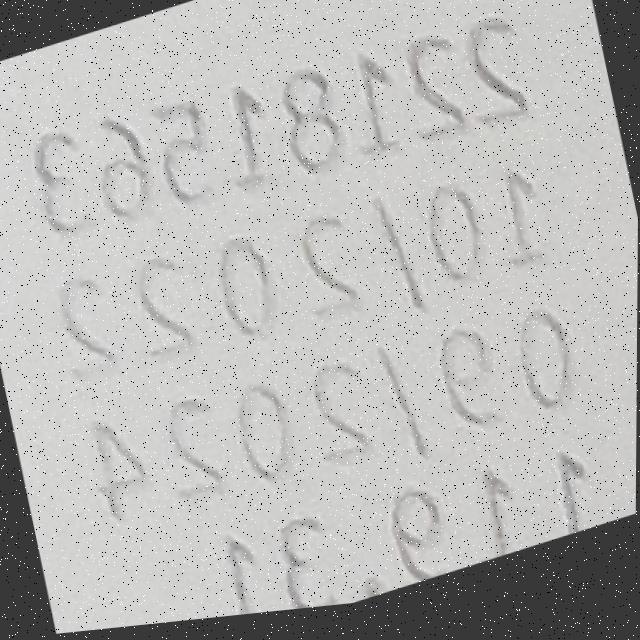 22181563
10/2022
09/2024
119.31